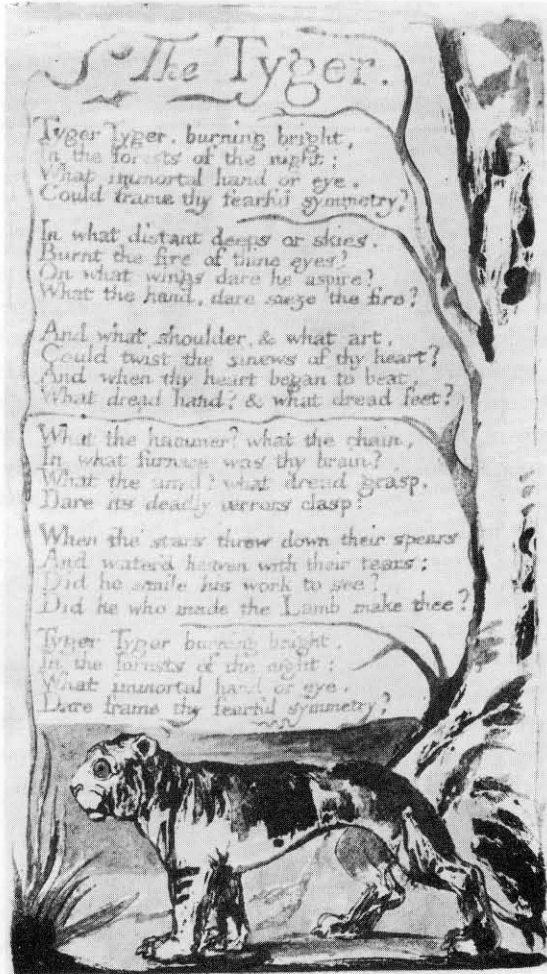 The Tyger.
Tyger Tyger, burning bright,
In the forests of the night:
What immortal hand or eye,
Could frame thy fearful symmetry?
In what distant deeps or skies,
Burnt the fire of thine eyes?
On what wings dare he aspire?
What the hand, dare sieze the fire?
And what shoulder, & what art,
Could twist the sinews of thy heart?
And when thy heart began to beat,
What dread hand? & what dread feet?
What the hammer? what the chain,
In what furnace was thy brain?
What the anvil? what dread grasp,
Dare its deadly terrors clasp!
When the stars threw down their spears
And water'd heaven with their tears:
Did he smile his work to see?
Did he who made the Lamb make thee?
Tyger Tyger burning bright,
In the forests of the night:
What immortal hand or eye,
Dare frame thy fearful symmetry?